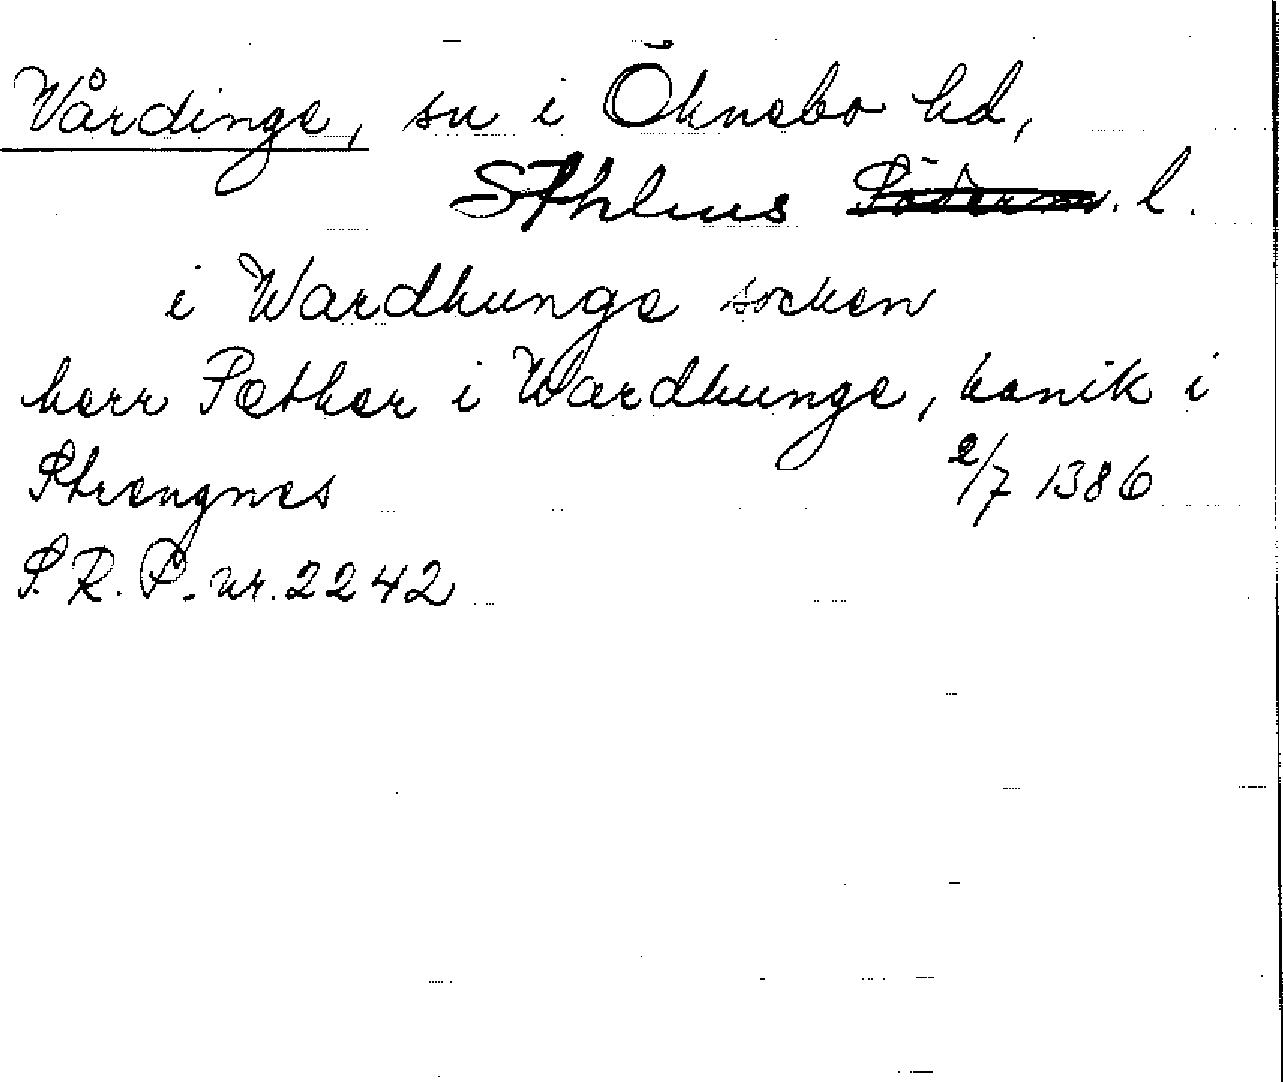 Vårdinge, sn i Öknebo hd,
Sthlms Söderm. l.
i Wardhunge socken
herr Pæthar i Wardhunge, kanik i
Strengnes 2/7 1386
S.R.P. nr. 2242